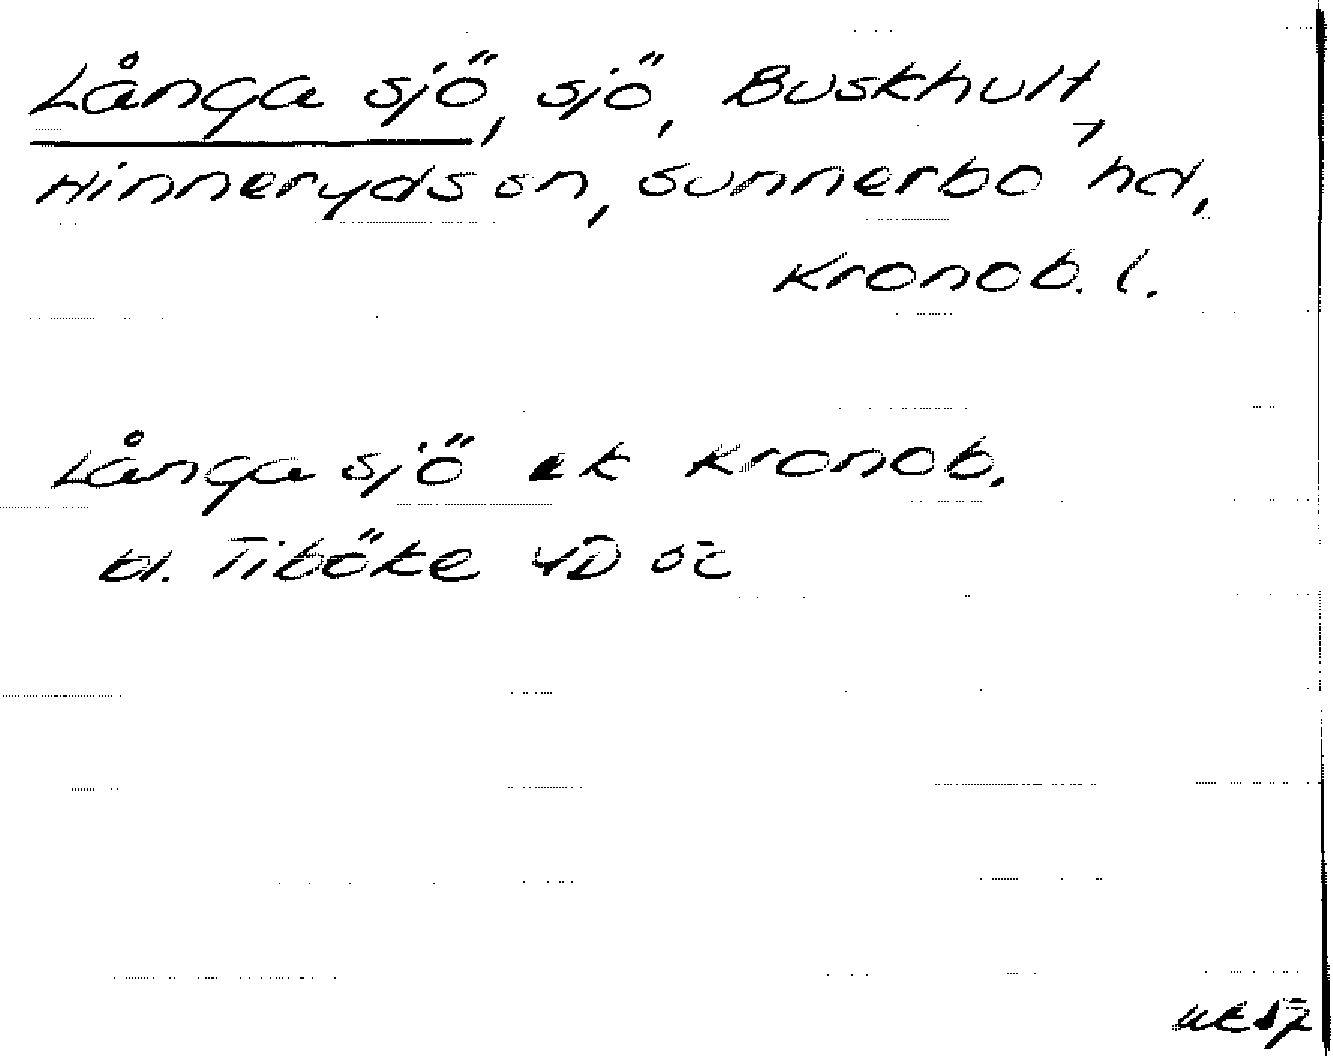 Långa sjö, sjö, Buskhult,
Hinneryds sn, Sunnerbo hd,
Kronob. l.
Långa sjö ek Kronob.
bl. Tiböke 4D